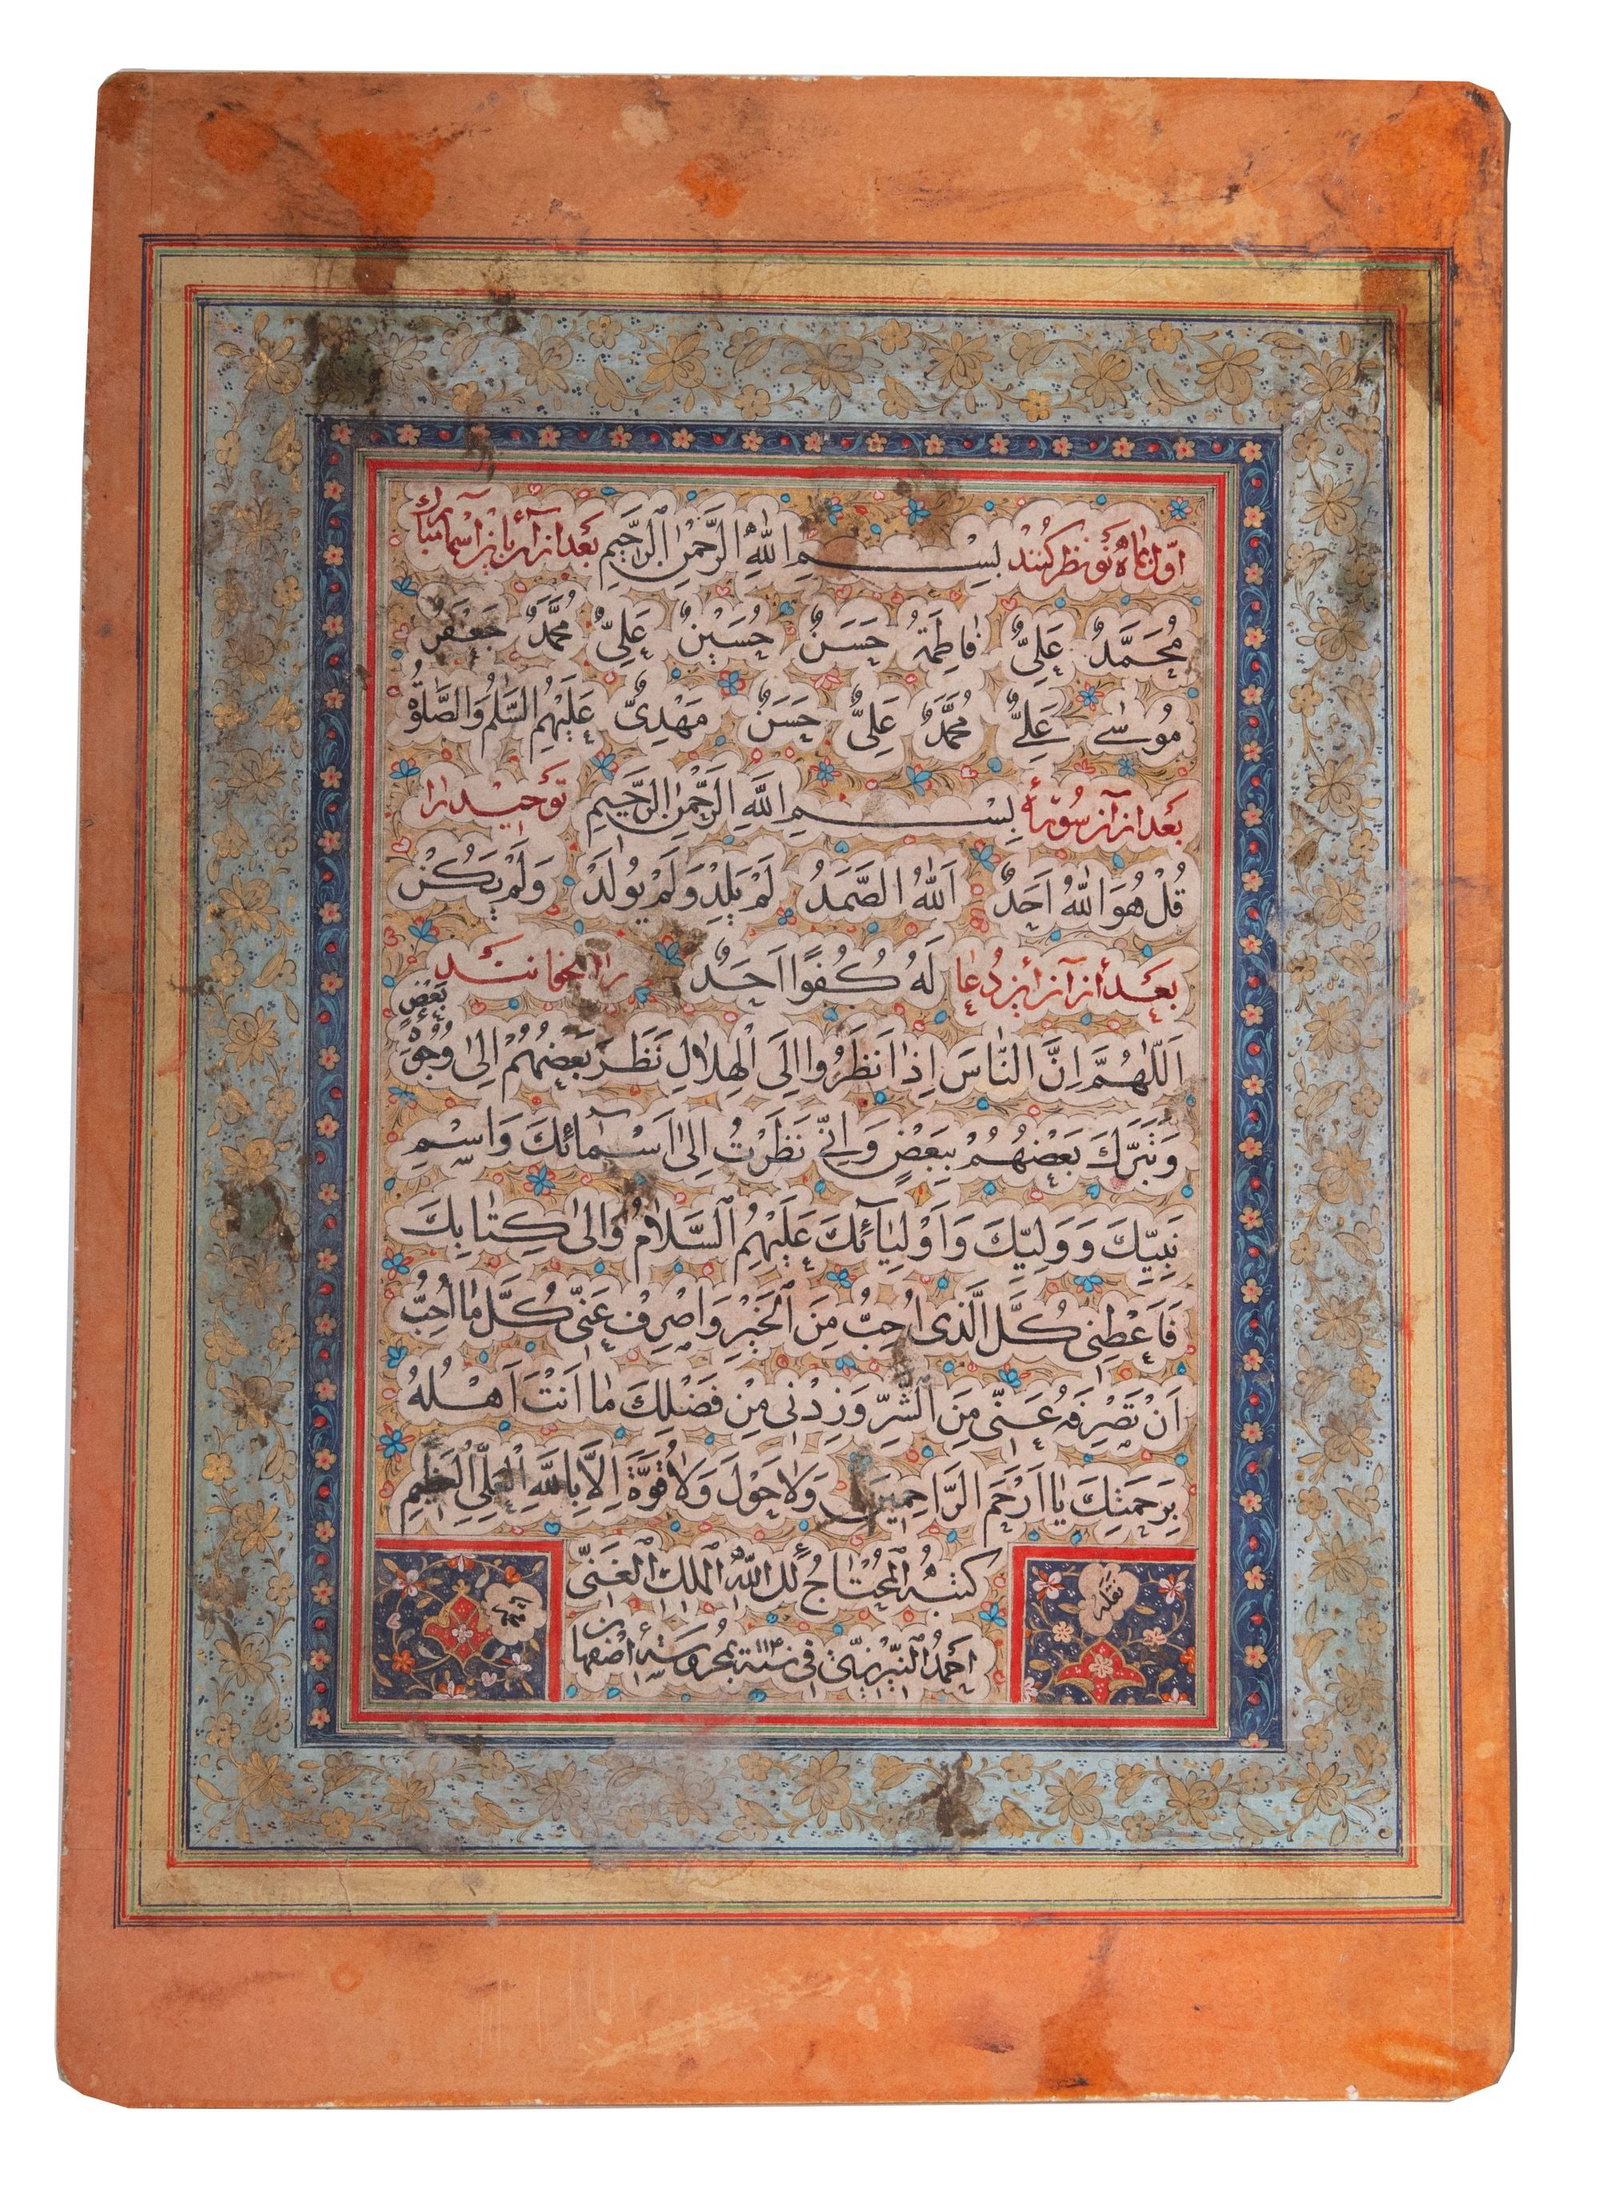 اوّل بماه نو نظر کنند بِسْمِ اللّٰهِ الرَّحْمٰنِ الرَّحِيمِ بعد از آن باین اسماء مبارک
مُحَمَّدٌ عَلِيٌّ فَاطِمَةُ حَسَنٌ حُسَيْنٌ عَلِيٌّ مُحَمَّدٌ جَعْفَرٌ
مُوسٰى عَلِيٌّ مُحَمَّدٌ عَلِيٌّ حَسَنٌ مَهْدِيٌّ عَلَيْهِمُ السَّلٰمُ وَالصَّلٰوةُ
بعد از آن سورۀ بِسْمِ اللّٰهِ الرَّحْمٰنِ الرَّحِيمِ توحید را
قُلْ هُوَ اللّٰهُ اَحَدٌ اَللّٰهُ الصَّمَدُ لَمْ يَلِدْ وَلَمْ يُولَدْ وَلَمْ يَكُنْ
لَهُ كُفُوًا اَحَدٌ بعد از آن این دعا را بخوانند
اَللّٰهُمَّ اِنَّ النَّاسَ اِذَا نَظَرُوا اِلَى الْهِلَالِ نَظَرَ بَعْضُهُمْ اِلٰى وُجُوهِ بَعْضٍ
وَتَبَرَّكَ بَعْضُهُمْ بِبَعْضٍ وَاِنِّي نَظَرْتُ اِلٰى اَسْمَآئِكَ وَاسْمِ
نَبِيِّكَ وَوَلِيِّكَ وَاَوْلِيَآئِكَ عَلَيْهِمُ السَّلَامُ وَاِلٰى كِتَابِكَ
فَاَعْطِنِي كُلَّ الَّذِي اُحِبُّ مِنَ الْخَيْرِ وَاصْرِفْ عَنِّي كُلَّ مَا اُحِبُّ
اَنْ تَصْرِفَهُ عَنِّي مِنَ الشَّرِّ وَزِدْنِي مِنْ فَضْلِكَ مَا اَنْتَ اَهْلُهُ
بِرَحْمَتِكَ يَا اَرْحَمَ الرَّاحِمِينَ وَلَا حَوْلَ وَلَا قُوَّةَ اِلَّا بِاللّٰهِ الْعَلِيِّ الْعَظِيمِ
كتبه المحتاج الى اللّٰه الملك الغنى
احمد النيريزى فى سنة ١١٢ بمحروسۀ اصفهان